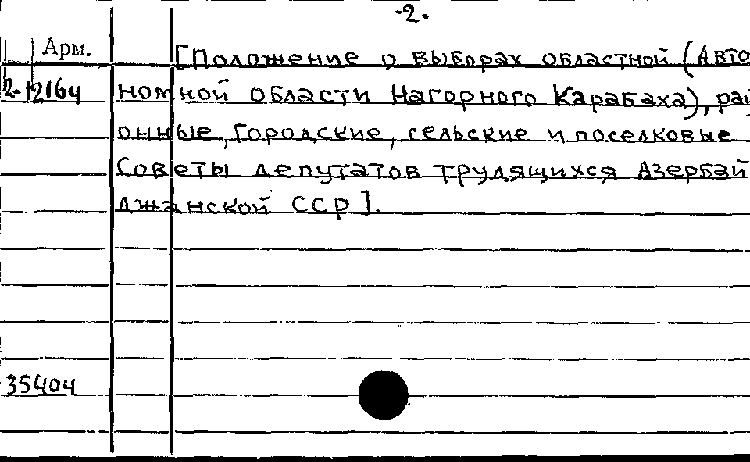 -2.
Арм.
[Положение о выборах областной (Авто
2-12164
номной области Нагорного Карабаха), рай
онные, городские, сельские и поселковые
Советы депутатов трудящихся Азербай
джанской ССР].
35404